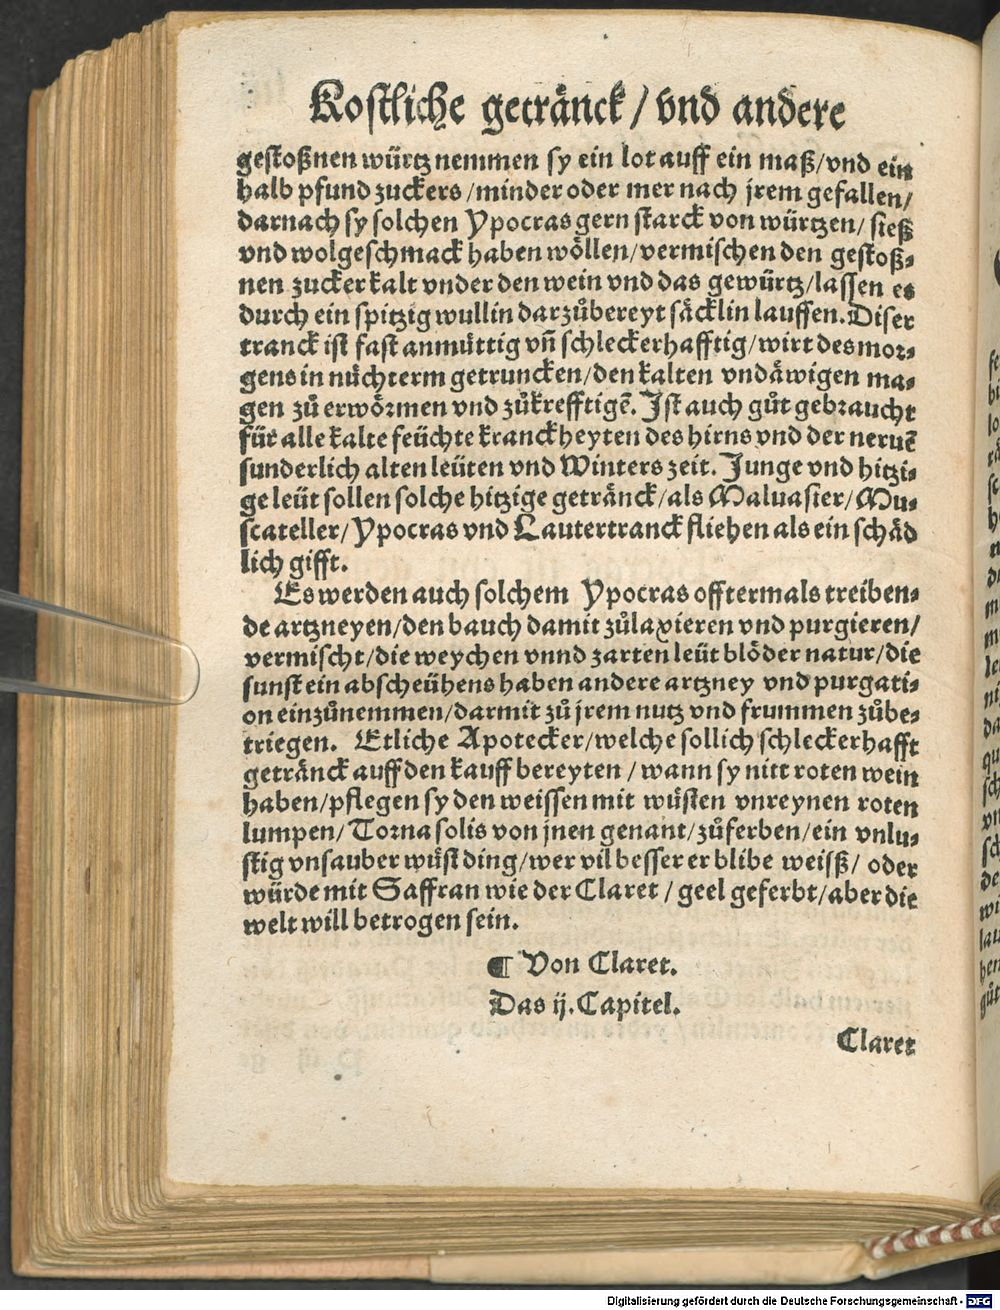 Kostliche getränck / vnd andere
gestoßnen würtz nemmen sy ein lot auff ein maß/vnd ein
halb pfund zuckers /minder oder mer nach jrem gefallen/
darnach sy solchen Ypocras gern starck von würtzen/ sieß
vnd wolgeschmack haben wöllen/vermischen den gestoß⸗
nen zucker kalt vnder den wein vnd das gewürtz/lassen es
durch ein spitzig wullin darzůbereyt säcklin lauffen. Diser
tranck ist fast anmüttig vñ schleckerhafftig/wirt des mor⸗
gens in nüchterm getruncken/den kalten vndäwigen ma⸗
gen zů erwörmen vnd zůkrefftigẽ. Ist auch gůt gebraucht
für alle kalte feüchte kranckheyten des hirns vnd der neruẽ
sunderlich alten leüten vnd Winters zeit. Junge vnd hitzi⸗
ge leüt sollen solche hitzige getränck/als Maluasier/Mu⸗
scateller/Ypocras vnd Lautertranck fliehen als ein schäd
lich gifft.
Es werden auch solchem Ypocras offtermals treiben⸗
de artzneyen/den bauch damit zůlaxieren vnd purgieren/
vermischt/die weychen vnnd zarten leüt blöder natur/die
sunst ein abscheühens haben andere artzney vnd purgati⸗
on einzůnemmen/darmit zů jrem nutz vnd frummen zůbe⸗
triegen. Etliche Apotecker/welche sollich schleckerhafft
getränck auff den kauff bereyten / wann sy nitt roten wein
haben/pflegen sy den weissen mit wüsten vnreynen roten
lumpen/Torna solis von jnen genant/zůferben/ein vnlu⸗
stig vnsauber wüst ding/wer vil besser er blibe weisß/ oder
würde mit Saffran wie der Claret / geel geferbt/aber die
welt will betrogen sein.
¶ Von Claret.
Das ij. Capitel.
Claret
Digitalisierung gefördert durch die Deutsche Forschungsgemeinschaft - DFG